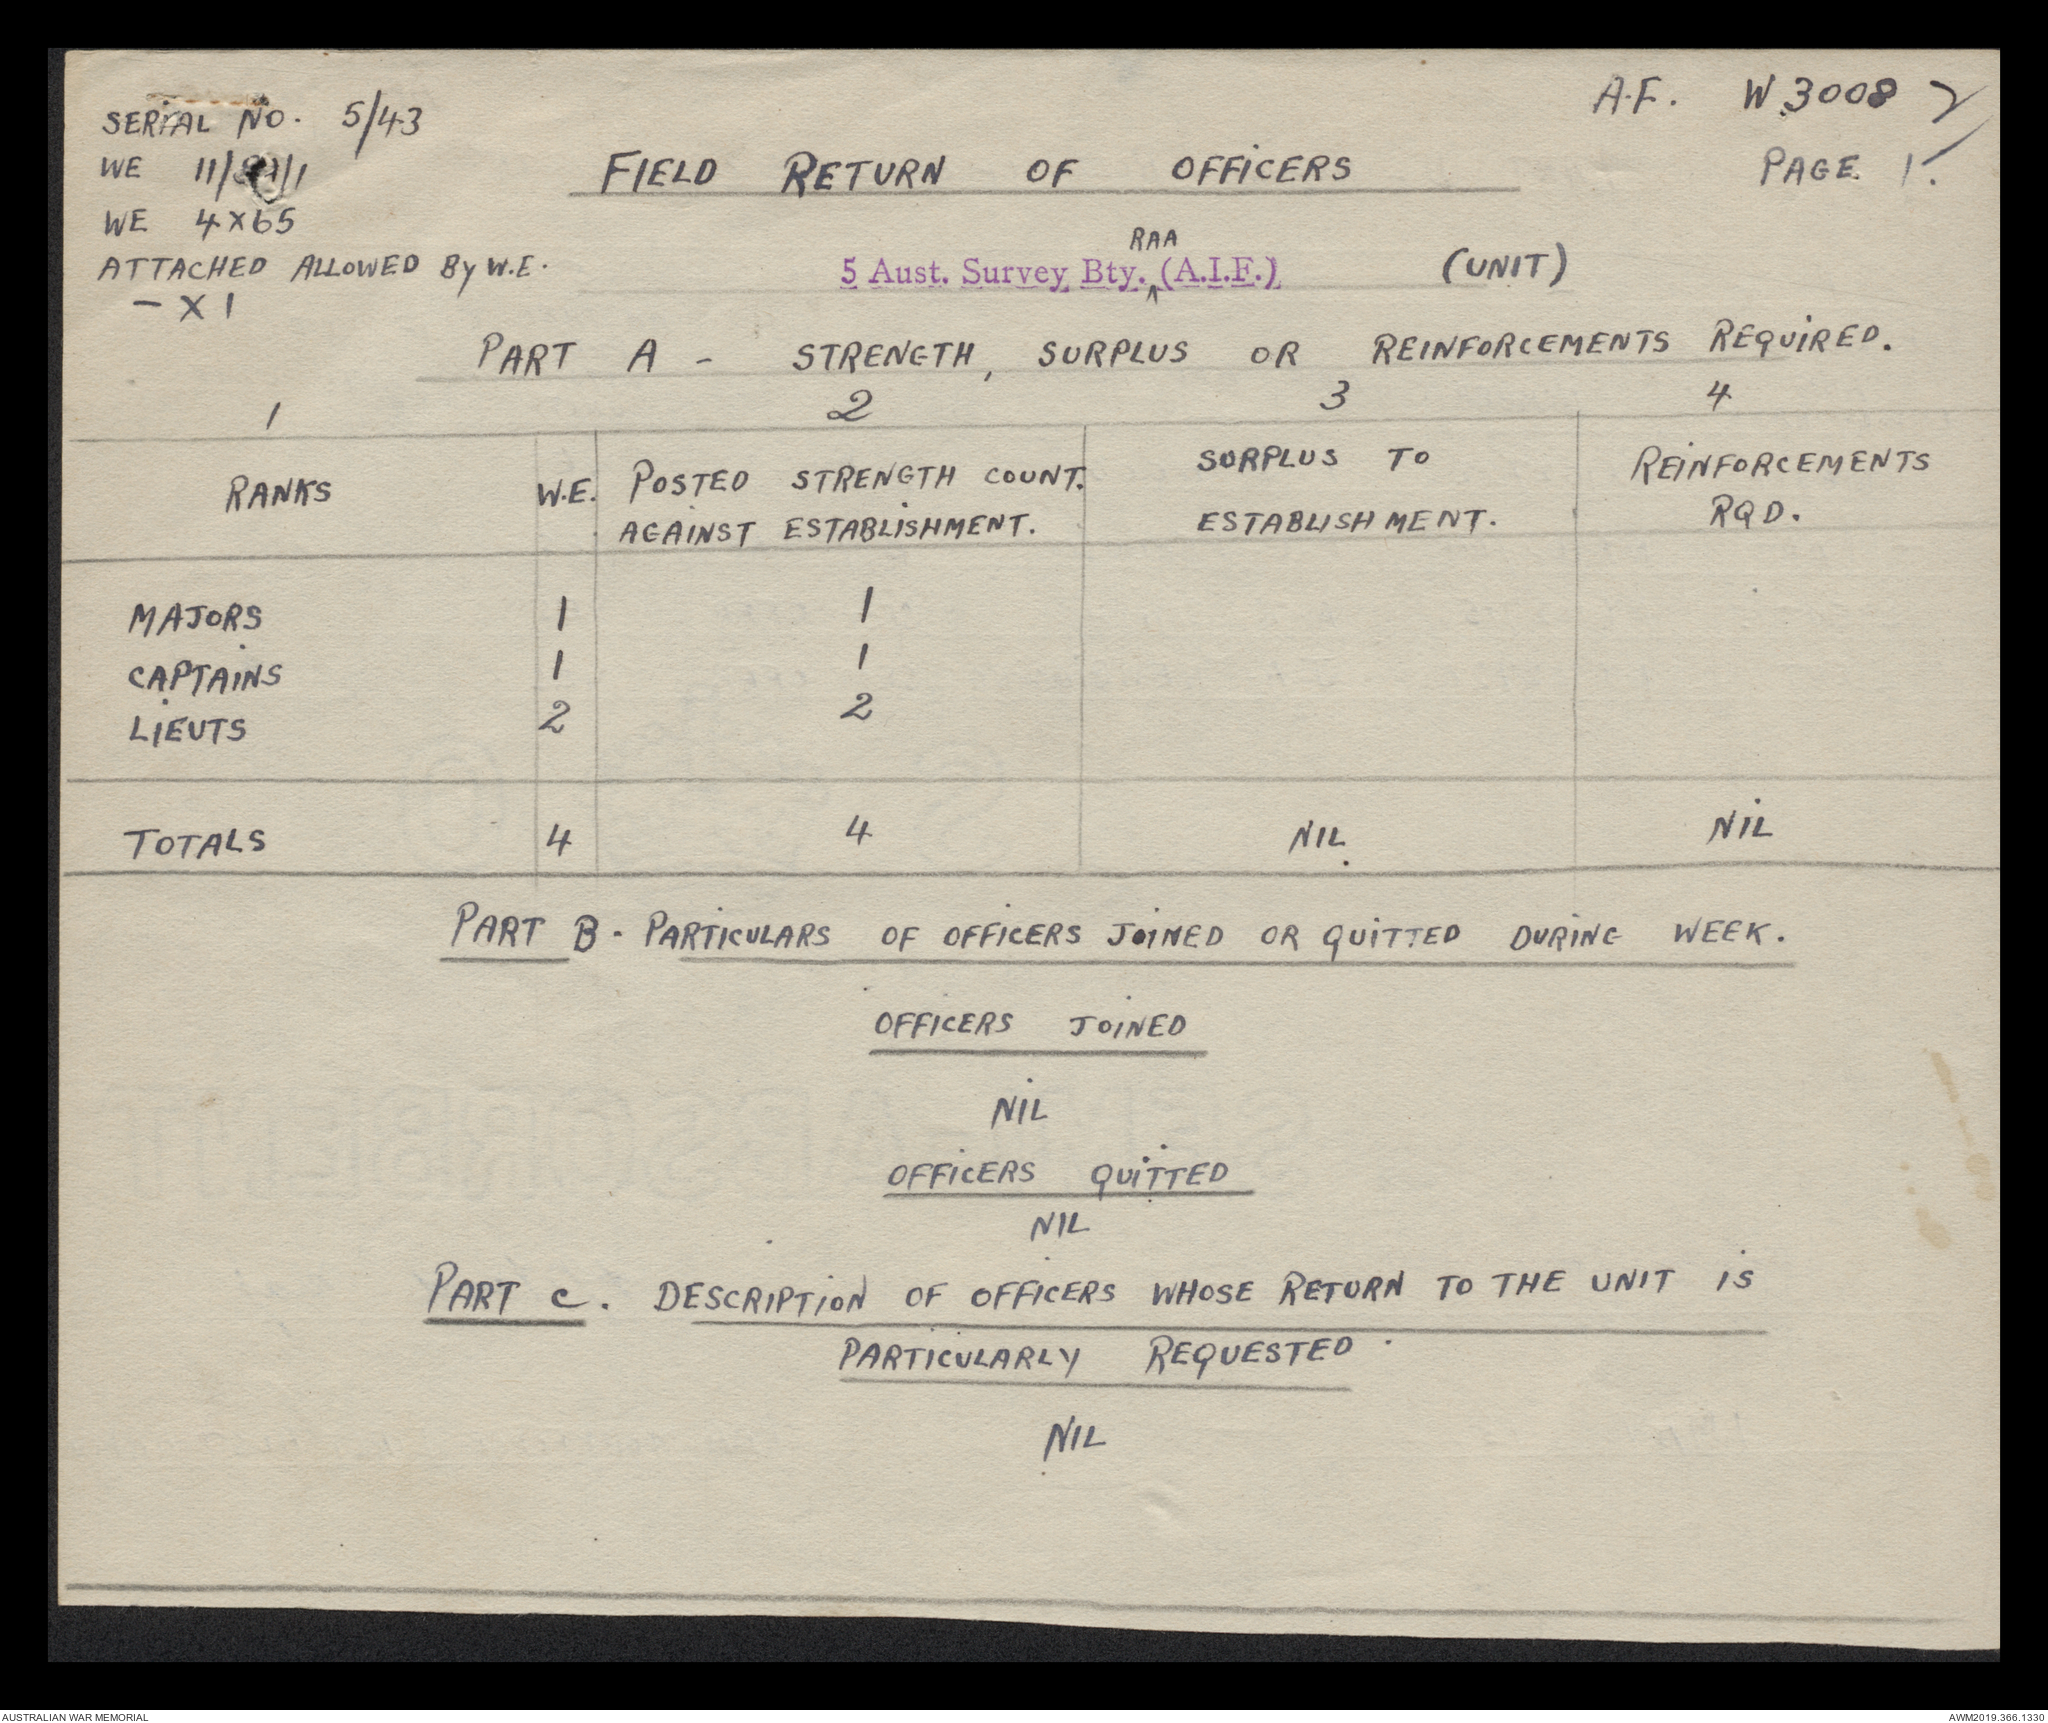 SERIAL NO. 5/43
A.F. W 3008
WE 11/ /1
FIELD RETURN OF OFFICERS
PAGE 1.
WE 4 x 65
ATTACHED ALLOWED By W.E.
- X 1
RAA
5 Aust. Survey Bty. (A.I.F.) (UNIT)
PART A - STRENGTH, SURPLUS OR REINFORCEMENTS REQUIRED.
1 2 3 4
RANKS W.E. POSTED STRENGTH COUNT. AGAINST ESTABLISHMENT. SURPLUS TO ESTABLISHMENT. REINFORCEMENTS RQD.
MAJORS 1 1
CAPTAINS 1 1
LIEUTS 2 2
TOTALS 4 4 NIL NIL
PART B - PARTICULARS OF OFFICERS JOINED OR QUITTED DURING WEEK.
OFFICERS JOINED
NIL
OFFICERS QUITTED
NIL
PART C. DESCRIPTION OF OFFICERS WHOSE RETURN TO THE UNIT IS
PARTICULARLY REQUESTED.
NIL
AUSTRALIAN WAR MEMORIAL
AWM2019.366.1330